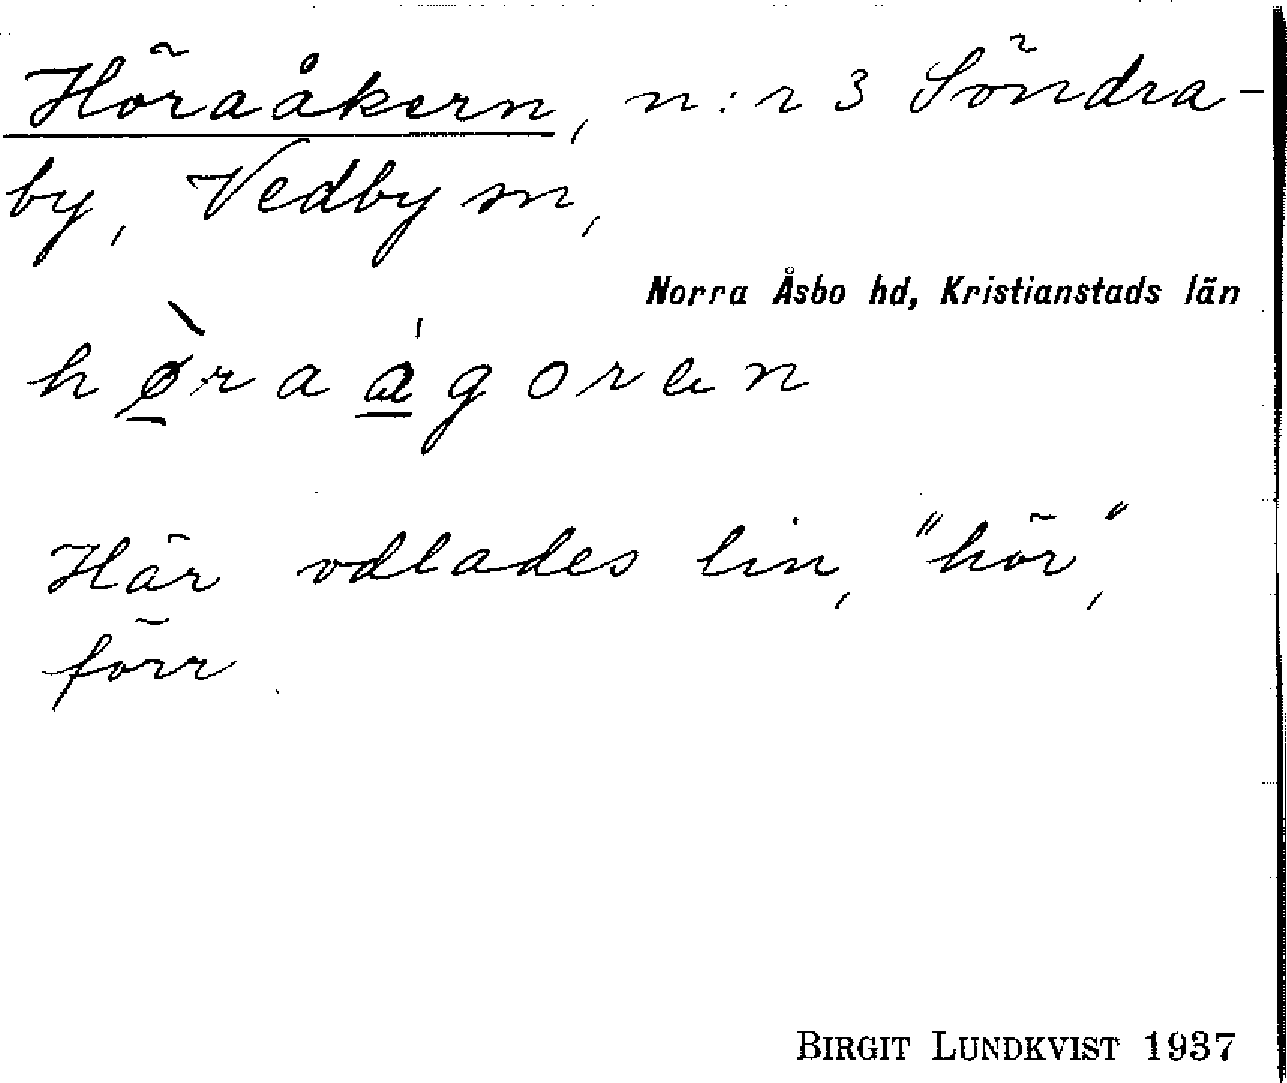 Höraåkern, n:r 3 Söndra-
by, Vedby sn,
Norra Åsbo hd, Kristianstads län
hø̀raágoren
Här odlades lin, "hör",
förr.
BIRGIT LUNDKVIST 1937